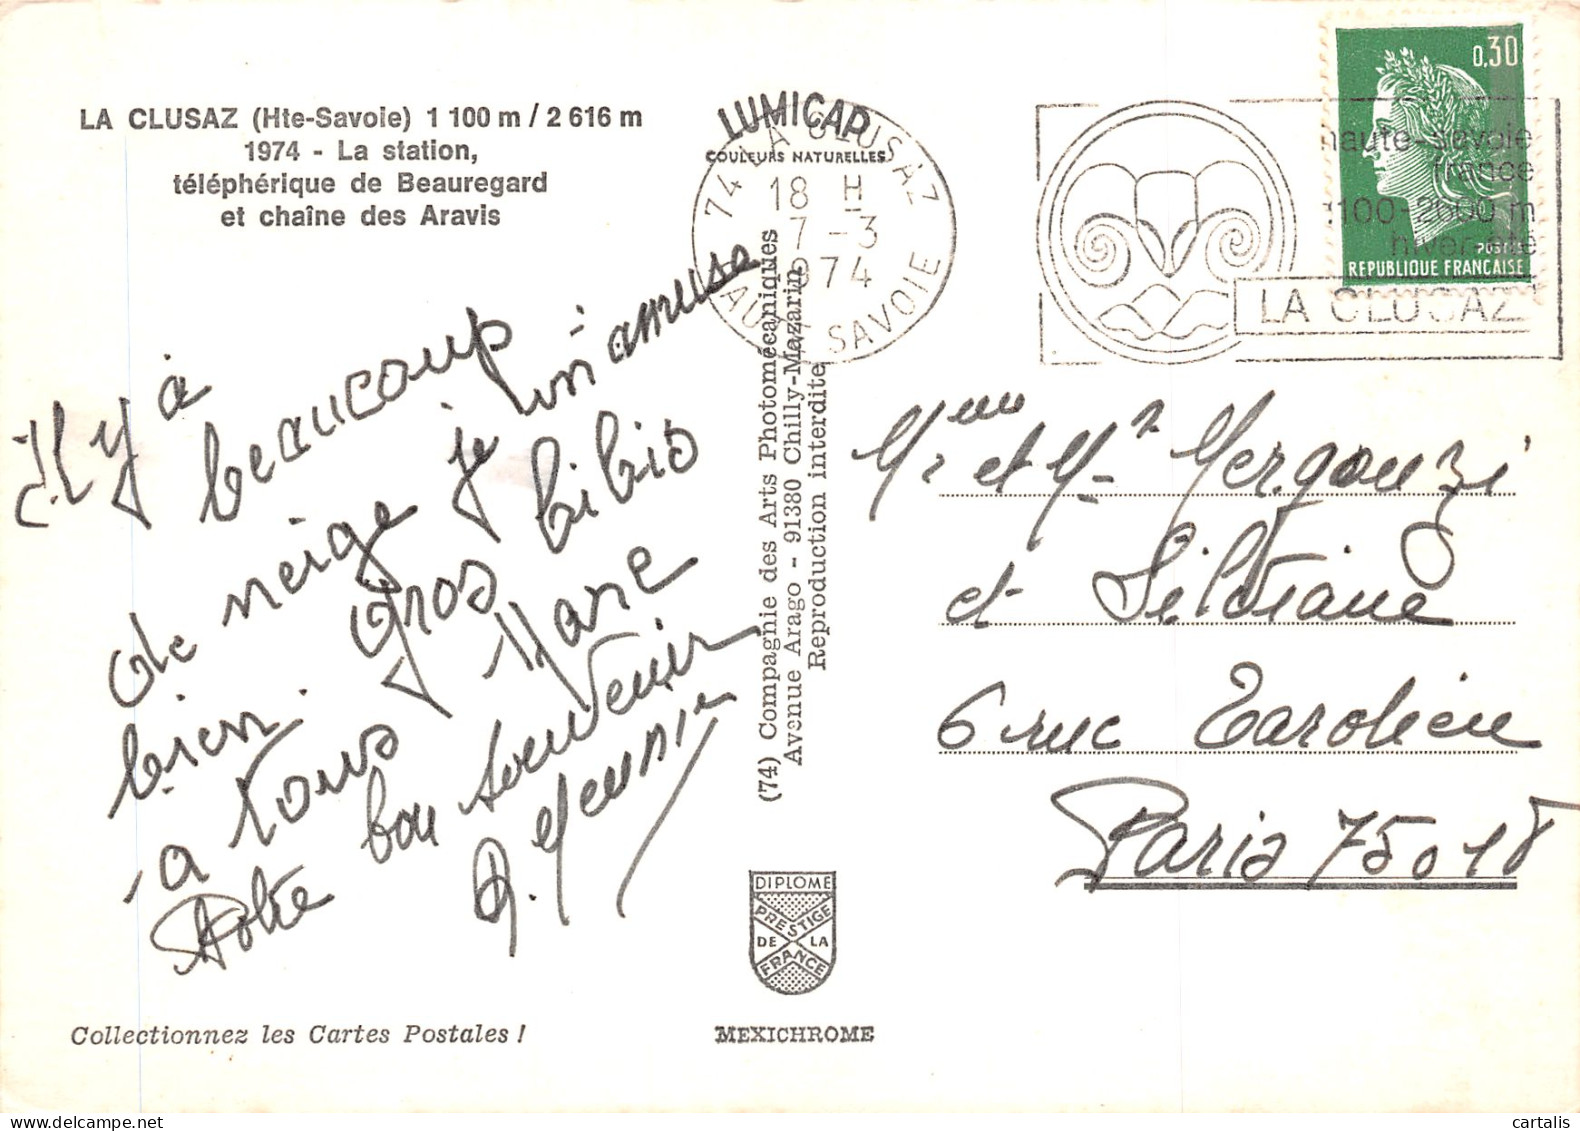 LA CLUSAZ (Hte-Savoie) 1 100 m / 2 616 m
1974 - La station,
téléphérique de Beauregard
et chaîne des Aravis
Il y à
beaucoup
de neige je m'amuse
bien. Gros bibis
a tous
bon souvenir
LUMICAP
COULEURS NATURELLES
74 LA CLUSAZ
18 H
7-3
1974
HAUTE SAVOIE
haute-savoie
france
1100-2600 m
hiver-été
LA CLUSAZ
0,30
POSTES
REPUBLIQUE FRANCAISE
(74) Compagnie des Arts Photomécaniques
Avenue Arago - 91380 Chilly-Mazarin
Reproduction interdite
et
6 rue
Paris 75018
DIPLOME
PRESTIGE
DE LA
FRANCE
Collectionnez les Cartes Postales !
MEXICHROME
cartalis